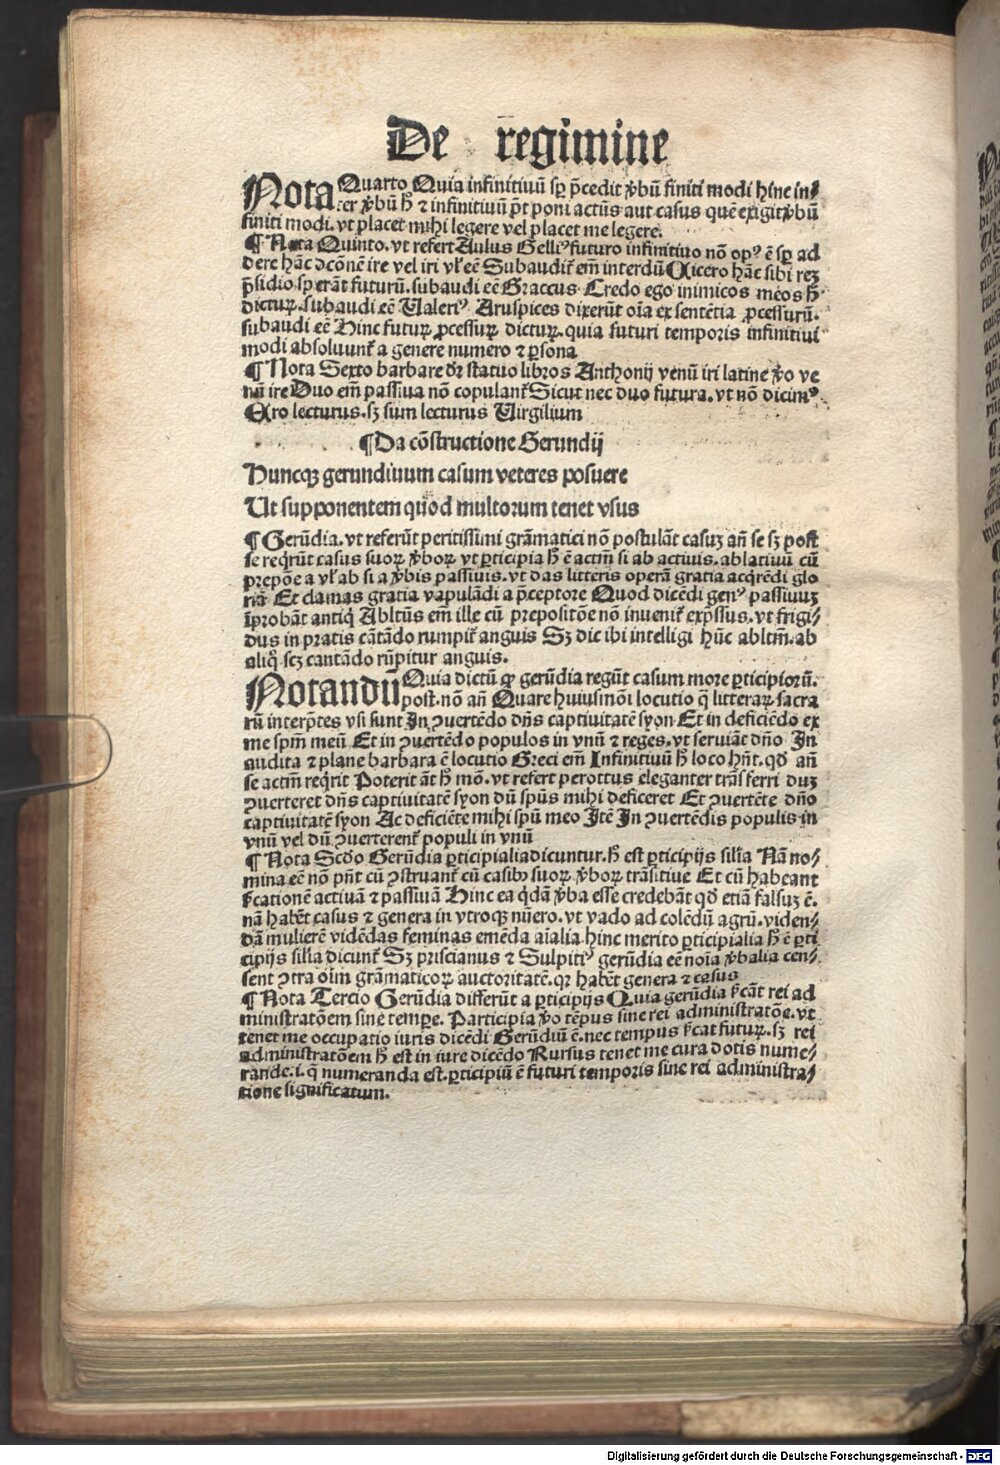 De regimine
Nota Quarto Quia infinitiuũ sꝑ p̃cedit v̾bũ finiti modi hinc in⸗
ter v̾bũ h̃ ⁊ infinitiuũ p̃t poni actũs aut casus quẽ exigit v̾bũ
finiti modi. vt placet mihi legere vel placet me legere.
¶ Nota Quinto. vt refert Aulus Gelliꝰ futuro infinitiuo nõ opꝰ ẽ sꝑ ad
dere hãc ↄcõnẽ ire vel iri vl̕ eẽ Subaudit̃ em̃ interdũ Cicero hãc sibi reꝫ
p̃sidio sꝑerãt futurũ. subaudi eẽ Graccus Credo ego inimicos meos h̃
dicturꝝ. subaudi eẽ Valeriꝰ Aruspices dixerũt oĩa ex sentẽtia ꝓcessurũ.
subaudi eẽ Hinc futurꝝ ꝓcessurꝝ dicturꝝ. quia futuri temporis infinitiui
modi absoluunt̃ a genere numero ⁊ ꝑsona
¶ Nota Sexto barbare dr̃ statuo libros Anthonij venũ iri latine v̾o ve
nũ ire Duo em̃ passiua nõ copulant̃ Sicut nec duo futura. vt nõ dicimꝰ
Ero lecturus. sꝫ sum lecturus Uirgilium
¶ Da cõstructione Gerundij
Huncqꝫ gerundiuum casum veteres posuere
Ut supponentem quod multorum tenet vsus
¶ Gerũdia. vt referũt peritissimi grãmatici nõ postulãt casuꝫ añ se sꝫ post
se reqr̃ũt casus suoꝝ v̾boꝝ vt ꝑticipia h̃ ẽ actm̃ si ab actiuis. ablatiuũ cũ
prepõe a vl̕ ab si a v̾bis passiuis. vt das litteris operã gratia acqrẽdi glo
riã Et clamas gratia vapulãdi a p̃ceptore Quod dicẽdi genꝰ passiuuꝫ
ĩprobãt antiq̃ Abltũs em̃ ille cũ prepositõe nõ inuenit̃ exp̃ssus. vt frigi⸗
dus in pratis cãtãdo rumpit̃ anguis Sꝫ dic ibi intelligi hũc abltm̃. ab
aliq̊ scꝫ cantãdo rũpitur anguis.
Notandũ Quia dictũ ꝙ gerũdia regũt casum more ꝑticipiorũ.
post. nõ añ Quare huiusmõi locutio q̃ litterarꝝ sacra
rũ interp̃tes vsi sunt In ↄuertẽdo dñs captiuitatẽ syon Et in deficiẽdo ex
me spm̃ meũ Et in ↄuertẽdo populos in vnũ ⁊ reges. vt seruiãt dño In
audita ⁊ plane barbara ẽ locutio Greci em̃ Infinitiuũ h̃ loco hñt. qđ añ
se actm̃ req̃rit Poterit ãt h̃ mõ. vt refert perottus eleganter trãsferri duꝫ
ↄuerteret dñs captiuitatẽ syon dũ spũs mihi deficeret Et ↄuertẽte dño
captiuitatẽ syon Ac deficiẽte mihi spũ meo Itẽ In ↄuertẽdis populis in
vnũ vel dũ ↄuerterent̃ populi in vnũ
¶ Nota Scđo Gerũdia ꝑticipialia dicuntur. h̃ est ꝑticipijs sil̃ia Nã no⸗
mina eẽ nõ pñt cũ ↄstruant̃ cũ casibꝰ suoꝝ v̾boꝝ trãsitiue Et cũ habeant
s̃catione actiuã ⁊ passiuã Hinc ea q̃dã v̾ba esse credebãt qđ etiã falsuꝫ ẽ.
nã habẽt casus ⁊ genera in vtroqꝫ nũero. vt vado ad colẽdũ agrũ. viden⸗
dã mulierẽ vidẽdas feminas emẽda aĩalia. hinc merito ꝑticipialia h̃ ẽ ꝑti
cipijs sil̃ia dicunt̃ Sꝫ priscianus ⁊ Sulpitiꝰ gerũdia eẽ noĩa v̾balia cen⸗
sent ↄtra oĩm grãmaticoꝝ auctoritatẽ. qꝛ habẽt genera ⁊ casus
¶ Nota Tercio Gerũdia differũt a ꝑticipijs Quia gerũdia s̃cãt rei ad
ministratõem sine tempe. Participia v̾o tẽpus sine rei administratõe. vt
tenet me occupatio iuris dicẽdi Gerũdiũ ẽ. nec tempus s̃cat futurꝝ. sꝫ rei
administratõem h̃ est in iure dicẽdo Rursus tenet me cura dotis nume⸗
rande. i. q̃ numeranda est. ꝑticipiũ ẽ futuri temporis sine rei administra⸗
tione significatium.
Digitalisierung gefördert durch die Deutsche Forschungsgemeinschaft - DFG